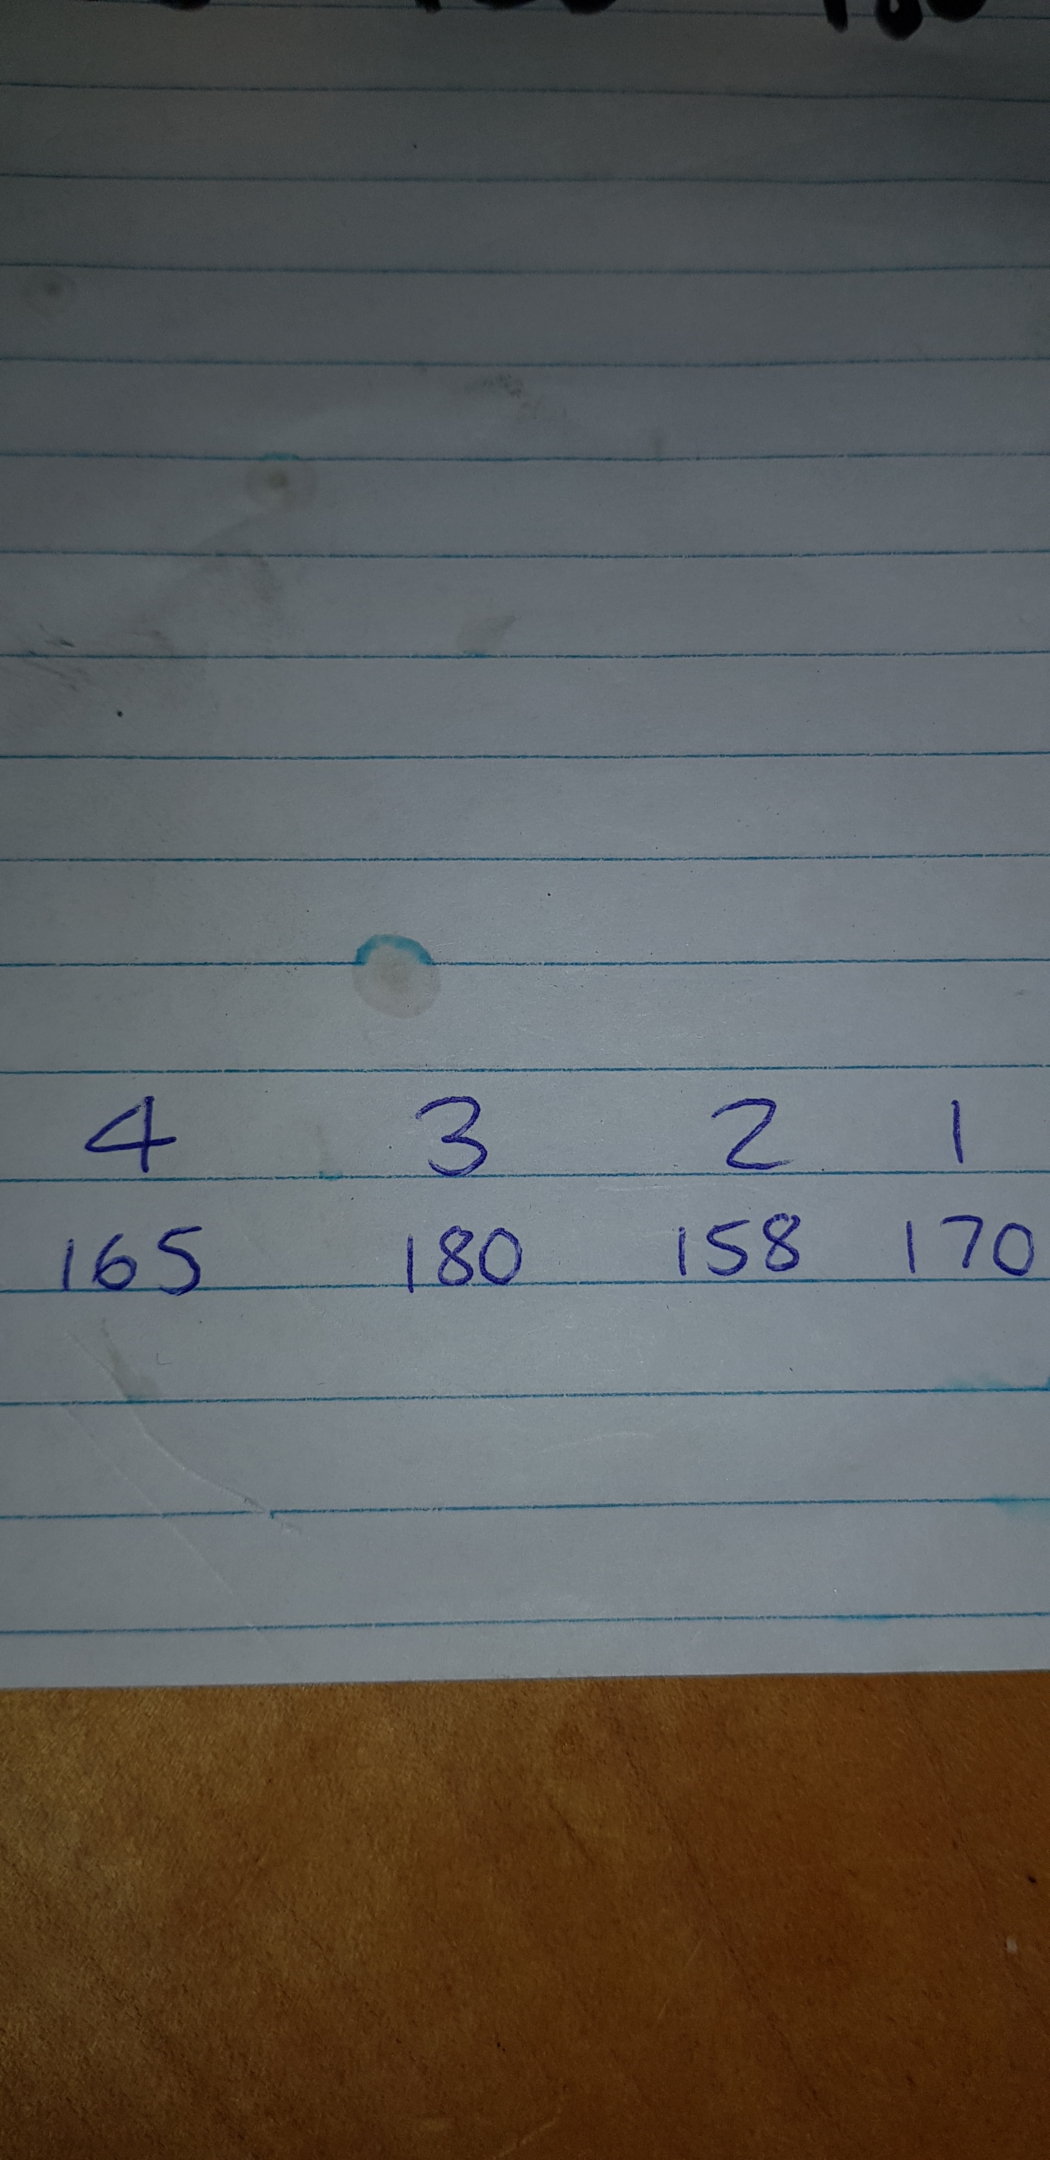 4 3 2 1
165 180 158 170